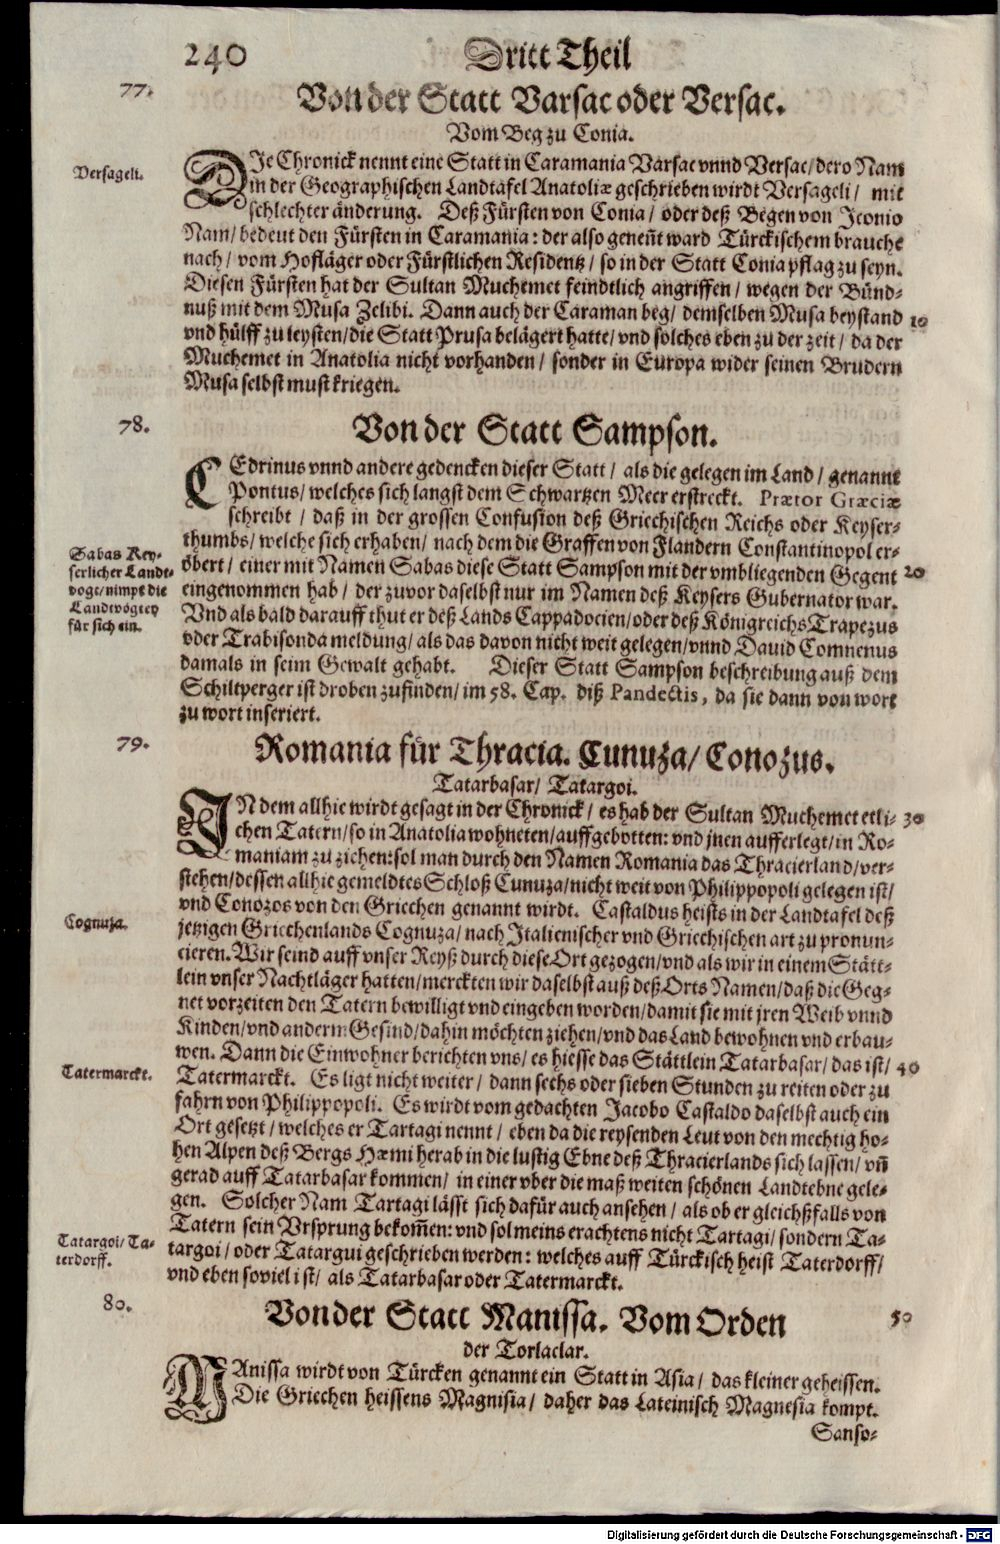 240 Dritt Theil
77. Von der Statt Varsac oder Versac.
Vom Beg zu Conia.
Versageli.
DIe Chronick nennt eine Statt in Caramania Varsac vnnd Versac/ dero Nam
in der Geographischen Landtafel Anatoliæ geschrieben wirdt Versageli/ mit
schlechter änderung. Deß Fürsten von Conia/ oder deß Begen von Iconio
Nam/ bedeut den Fürsten in Caramania: der also geneñt ward Türckischem brauche
nach/ vom Hofläger oder Fürstlichen Residentz/ so in der Statt Conia pflag zu seyn.
Diesen Fürsten hat der Sultan Muchemet feindtlich angriffen/ wegen der Bünd-
nuß mit dem Musa Zelibi. Dann auch der Caraman beg/ demselben Musa beystand 10
vnd hülff zu leysten/ die Statt Prusa belägert hatte/ vnd solches eben zu der zeit/ da der
Muchemet in Anatolia nicht vorhanden/ sonder in Europa wider seinen Brudern
Musa selbst must kriegen.
78. Von der Statt Sampson.
CEdrinus vnnd andere gedencken dieser Statt/ als die gelegen im Land/ genannt
Pontus/ welches sich langst dem Schwartzen Meer erstreckt. Prætor Græciæ
schreibt/ daß in der grossen Confusion deß Griechischen Reichs oder Keyser-
thumbs/ welche sich erhaben/ nach dem die Graffen von Flandern Constantinopol er-
Sabas Key-
serlicher Landt-
vogt/ nimpt die
Landtvogtey
für sich ein.
öbert/ einer mit Namen Sabas diese Statt Sampson mit der vmbliegenden Gegent 20
eingenommen hab/ der zuvor daselbst nur im Namen deß Keysers Gubernator war.
Vnd als bald darauff thut er deß Lands Cappadocien/ oder deß Königreichs Trapezus
oder Trabisonda meldung/ als das davon nicht weit gelegen/ vnnd David Comnenus
damals in seim Gewalt gehabt. Dieser Statt Sampson beschreibung auß dem
Schiltperger ist droben zufinden/ im 58. Cap. diß Pandectis, da sie dann von wort
zu wort inseriert.
79. Romania für Thracia. Cunuza/ Conozus.
Tatarbasar/ Tatargoi.
IN dem allhie wirdt gesagt in der Chronick/ es hab der Sultan Muchemet etli- 30
chen Tatern/ so in Anatolia wohneten/ auffgebotten: vnd jnen aufferlegt/ in Ro-
maniam zu ziehen: sol man durch den Namen Romania das Thracierland/ ver-
stehen/ dessen allhie gemeldtes Schloß Cunuza/ nicht weit von Philippopoli gelegen ist/
vnd Conozos von den Griechen genannt wirdt. Castaldus heists in der Landtafel deß
Cognuza.
jetzigen Griechenlands Cognuza/ nach Italienischer vnd Griechischen art zu pronun-
cieren. Wir seind auff vnser Reyß durch diese Ort gezogen/ vnd als wir in einem Stätt-
lein vnser Nachtläger hatten/ merckten wir daselbst auß deß Orts Namen/ daß die Geg-
net vorzeiten den Tatern bewilligt vnd eingeben worden/ damit sie mit jren Weib vnnd
Kinden/ vnd anderm Gesind/ dahin möchten ziehen/ vnd das Land bewohnen vnd erbau-
wen. Dann die Einwohner berichten vns/ es hiesse das Stättlein Tatarbasar/ das ist/ 40
Tatermarckt.
Tatermarckt. Es ligt nicht weiter/ dann sechs oder sieben Stunden zu reiten oder zu
fahrn von Philippopoli. Es wirdt vom gedachten Jacobo Castaldo daselbst auch ein
Ort gesetzt/ welches er Tartagi nennt/ eben da die reysenden Leut von den mechtig ho-
hen Alpen deß Bergs Hæmi herab in die lustig Ebne deß Thracierlands sich lassen/ vñ
gerad auff Tatarbasar kommen/ in einer vber die maß weiten schönen Landtebne gele-
gen. Solcher Nam Tartagi lässt sich dafür auch ansehen/ als ob er gleichßfalls von
Tatern sein Vrsprung bekom̃en: vnd sol meins erachtens nicht Tartagi/ sondern Ta-
Tatargoi/ Ta-
terdorff.
targoi/ oder Tatargui geschrieben werden: welches auff Türckisch heist Taterdorff/
vnd eben soviel ist/ als Tatarbasar oder Tatermarckt.
80. Von der Statt Manissa. Vom Orden 50
der Torlaclar.
MAnissa wirdt von Türcken genannt ein Statt in Asia/ das kleiner geheissen.
Die Griechen heissens Magnisia/ daher das Lateinisch Magnesia kompt.
Sanso-
Digitalisierung gefördert durch die Deutsche Forschungsgemeinschaft - DFG